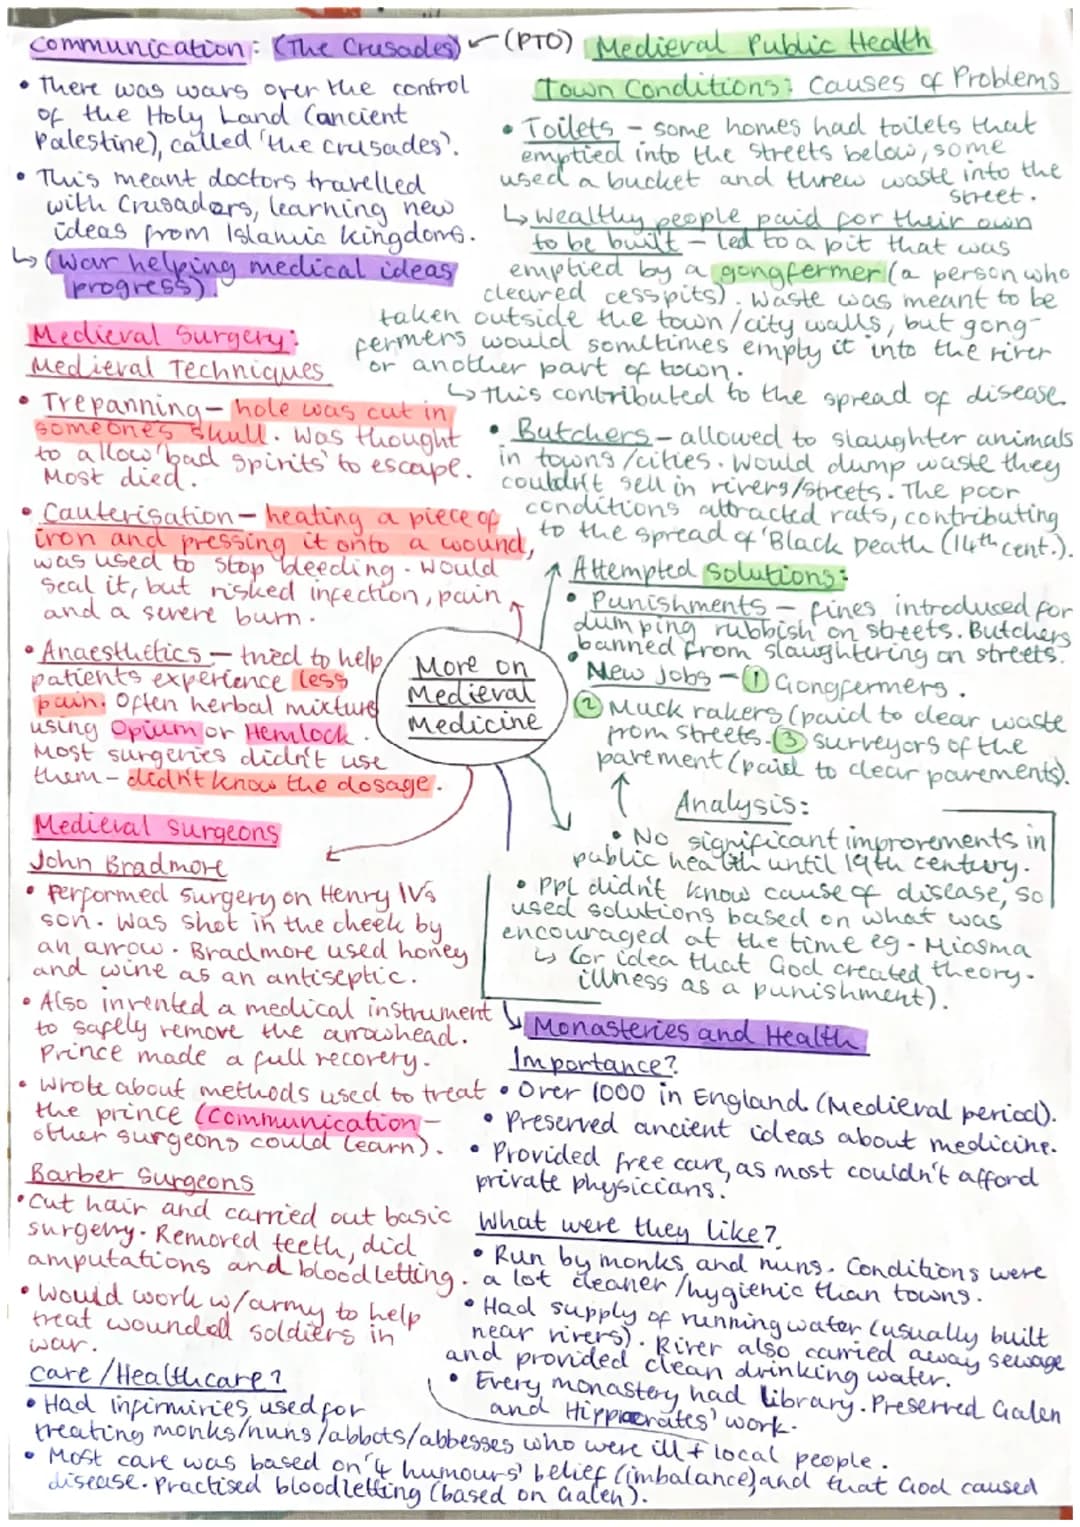 Communication: (The Crusades) (PTO)
• There was wars over the control
of the Holy Land (ancient
Palestine), called 'the crusades'.
• This meant doctors travelled
with Crusaders, learning new
ideas from Islamic kingdoms.
↳ (war helping medical ideas
progress).
Medieval Surgery:
Medieval Techniques
• Trepanning – hole was cut in
someones skull. Was thought
to allow 'bad spirits' to escape.
Most died.
• Cauterisation – heating a piece of
iron and pressing it onto a wound,
was used to stop bleeding. Would
seal it, but risked infection, pain
and a severe burn.
• Anaesthetics – tried to help
patients experience less
pain. Often herbal mixture
using Opium or Hemlock.
Most surgeries didn't use
them – didn't know the dosage.
More on
Medieval
Medicine
Medieval Surgeons
John Bradmore
• Performed surgery on Henry IVs
son. Was shot in the cheek by
an arrow. Bradmore used honey
and wine as an antiseptic.
• Also invented a medical instrument
to safely remove the arrowhead.
Prince made a full recovery.
• Wrote about methods used to treat
the prince (Communication –
other surgeons could learn).
Barber Surgeons
• Cut hair and carried out basic
surgery. Removed teeth, did
amputations and bloodletting.
• Would work w/army to help
treat wounded soldiers in
war.
Medieval Public Health
Town Conditions: Causes of Problems
• Toilets – some homes had toilets that
emptied into the streets below, some
used a bucket and threw waste into the
street.
↳ Wealthy people paid for their own
to be built – led to a pit that was
emptied by a gongfermer (a person who
cleared cesspits). Waste was meant to be
taken outside the town/city walls, but gong-
fermers would sometimes empty it into the river
or another part of town.
↳ This contributed to the spread of disease.
• Butchers – allowed to slaughter animals
in towns/cities. Would dump waste they
couldn't sell in rivers/streets. The poor
conditions attracted rats, contributing
to the spread of 'Black Death (14th cent.).
Attempted Solutions:
• Punishments – fines introduced for
dumping rubbish on streets. Butchers
banned from slaughtering on streets.
• New Jobs – ① Gongfermers.
② Muck rakers (paid to clear waste
from streets. ③ surveyors of the
pavement (paid to clear pavements).
Analysis:
• No significant improvements in
public health until 19th century.
• Ppl didn't know cause of disease, so
used solutions based on what was
encouraged at the time eg - Miasma
↳ (or idea that God created theory.
illness as a punishment).
Monasteries and Health
Importance?
• Over 1000 in England (Medieval period).
• Preserved ancient ideas about medicine.
• Provided free care, as most couldn't afford
private physicians.
What were they like?
• Run by monks and nuns. Conditions were
a lot cleaner/hygienic than towns.
• Had supply of running water (usually built
near rivers). River also carried away sewage
and provided clean drinking water.
• Every monastery had library. Preserved Galen
and Hippocrates' work.
Care/Healthcare?
• Had infirmiries used for
treating monks/nuns/abbots/abbesses who were ill + local people.
• Most care was based on '4 humours' belief (imbalance) and that God caused
disease. Practised bloodletting (based on Galen).